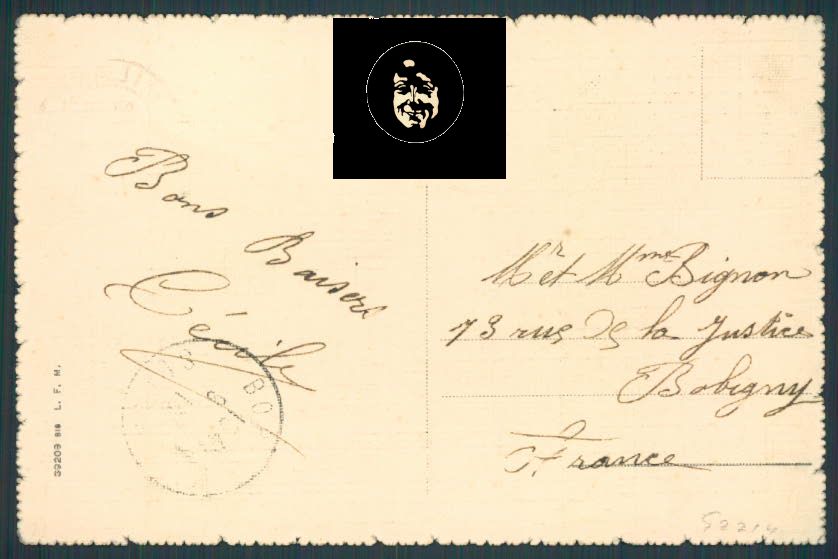 Bons
Baisers
Cécile
BO
39209 BIS L. F. M.
Mr et Mme Bignon
73 rue de la Justice
Bobigny
France
52214